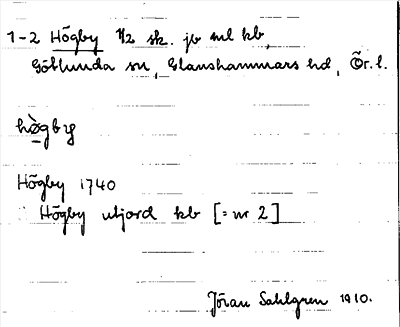 1-2 Högby 1/2 sk. jb ml kb,
Götlunda sn, Glanshammars hd, Ör. l.
hògby
Högby 1740
Högby utjord kb [= nr 2]
Jöran Sahlgren 1910.